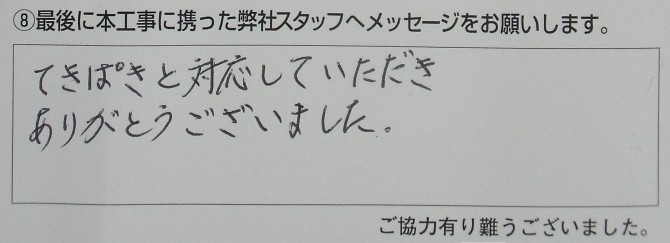 ⑧最後に本工事に携った弊社スタッフへメッセージをお願いします。
てきぱきと対応していただき
ありがとうございました。
ご協力有り難うございました。